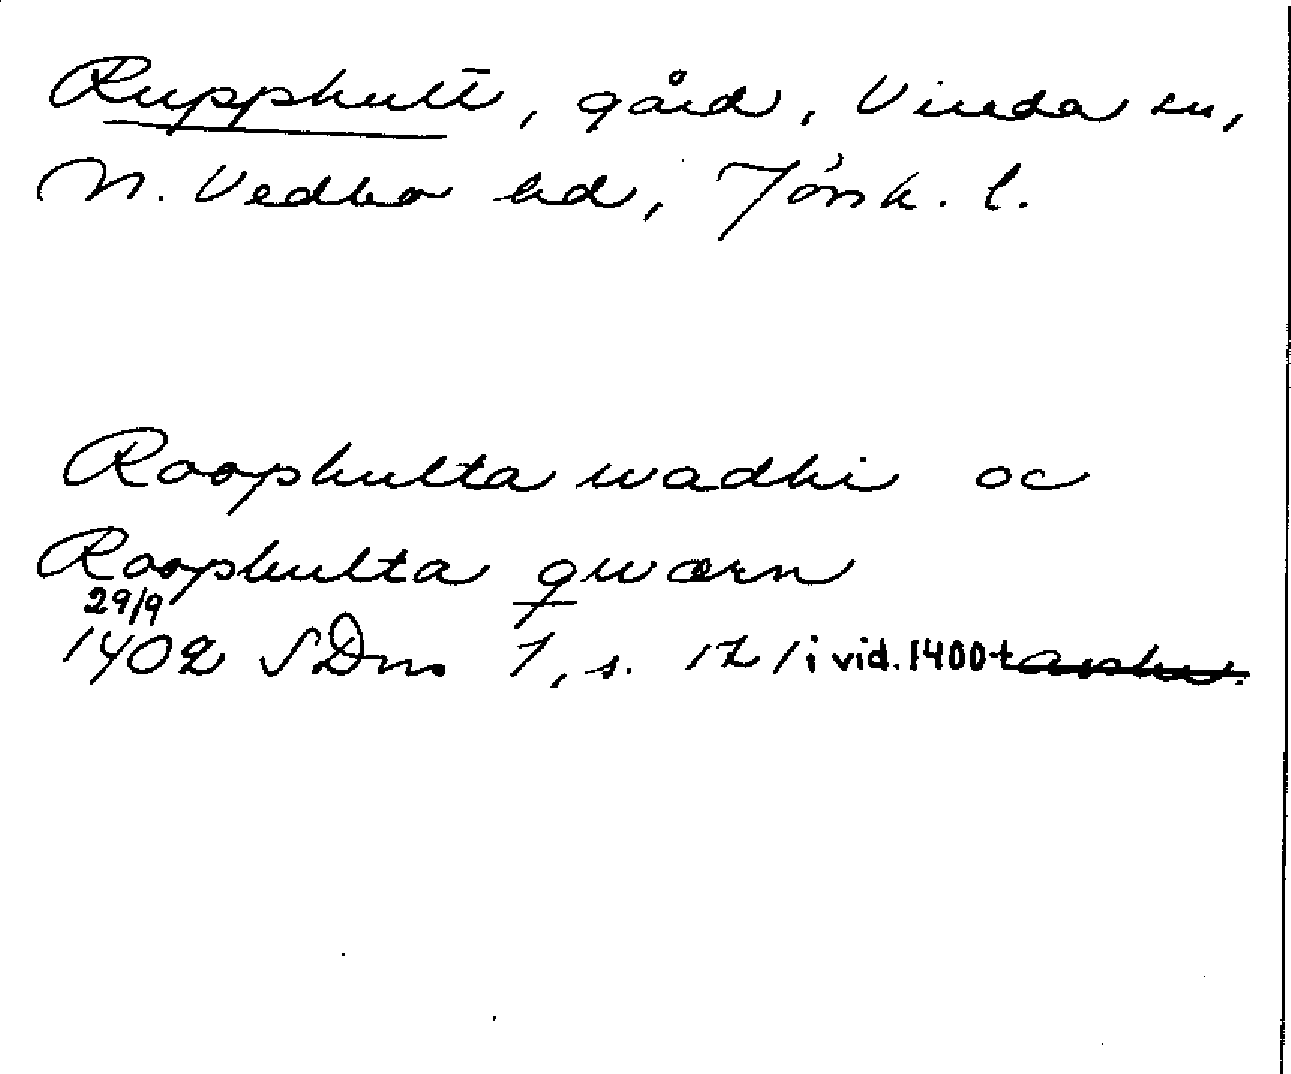 Rupphult, gård, Vireda sn,
N. Vedbo hd, Jönk. l.
Roophulta wadhi oc
Roophulta qwærn
29/9
1402 SDns 1, s. 121 i vid. 1400-t